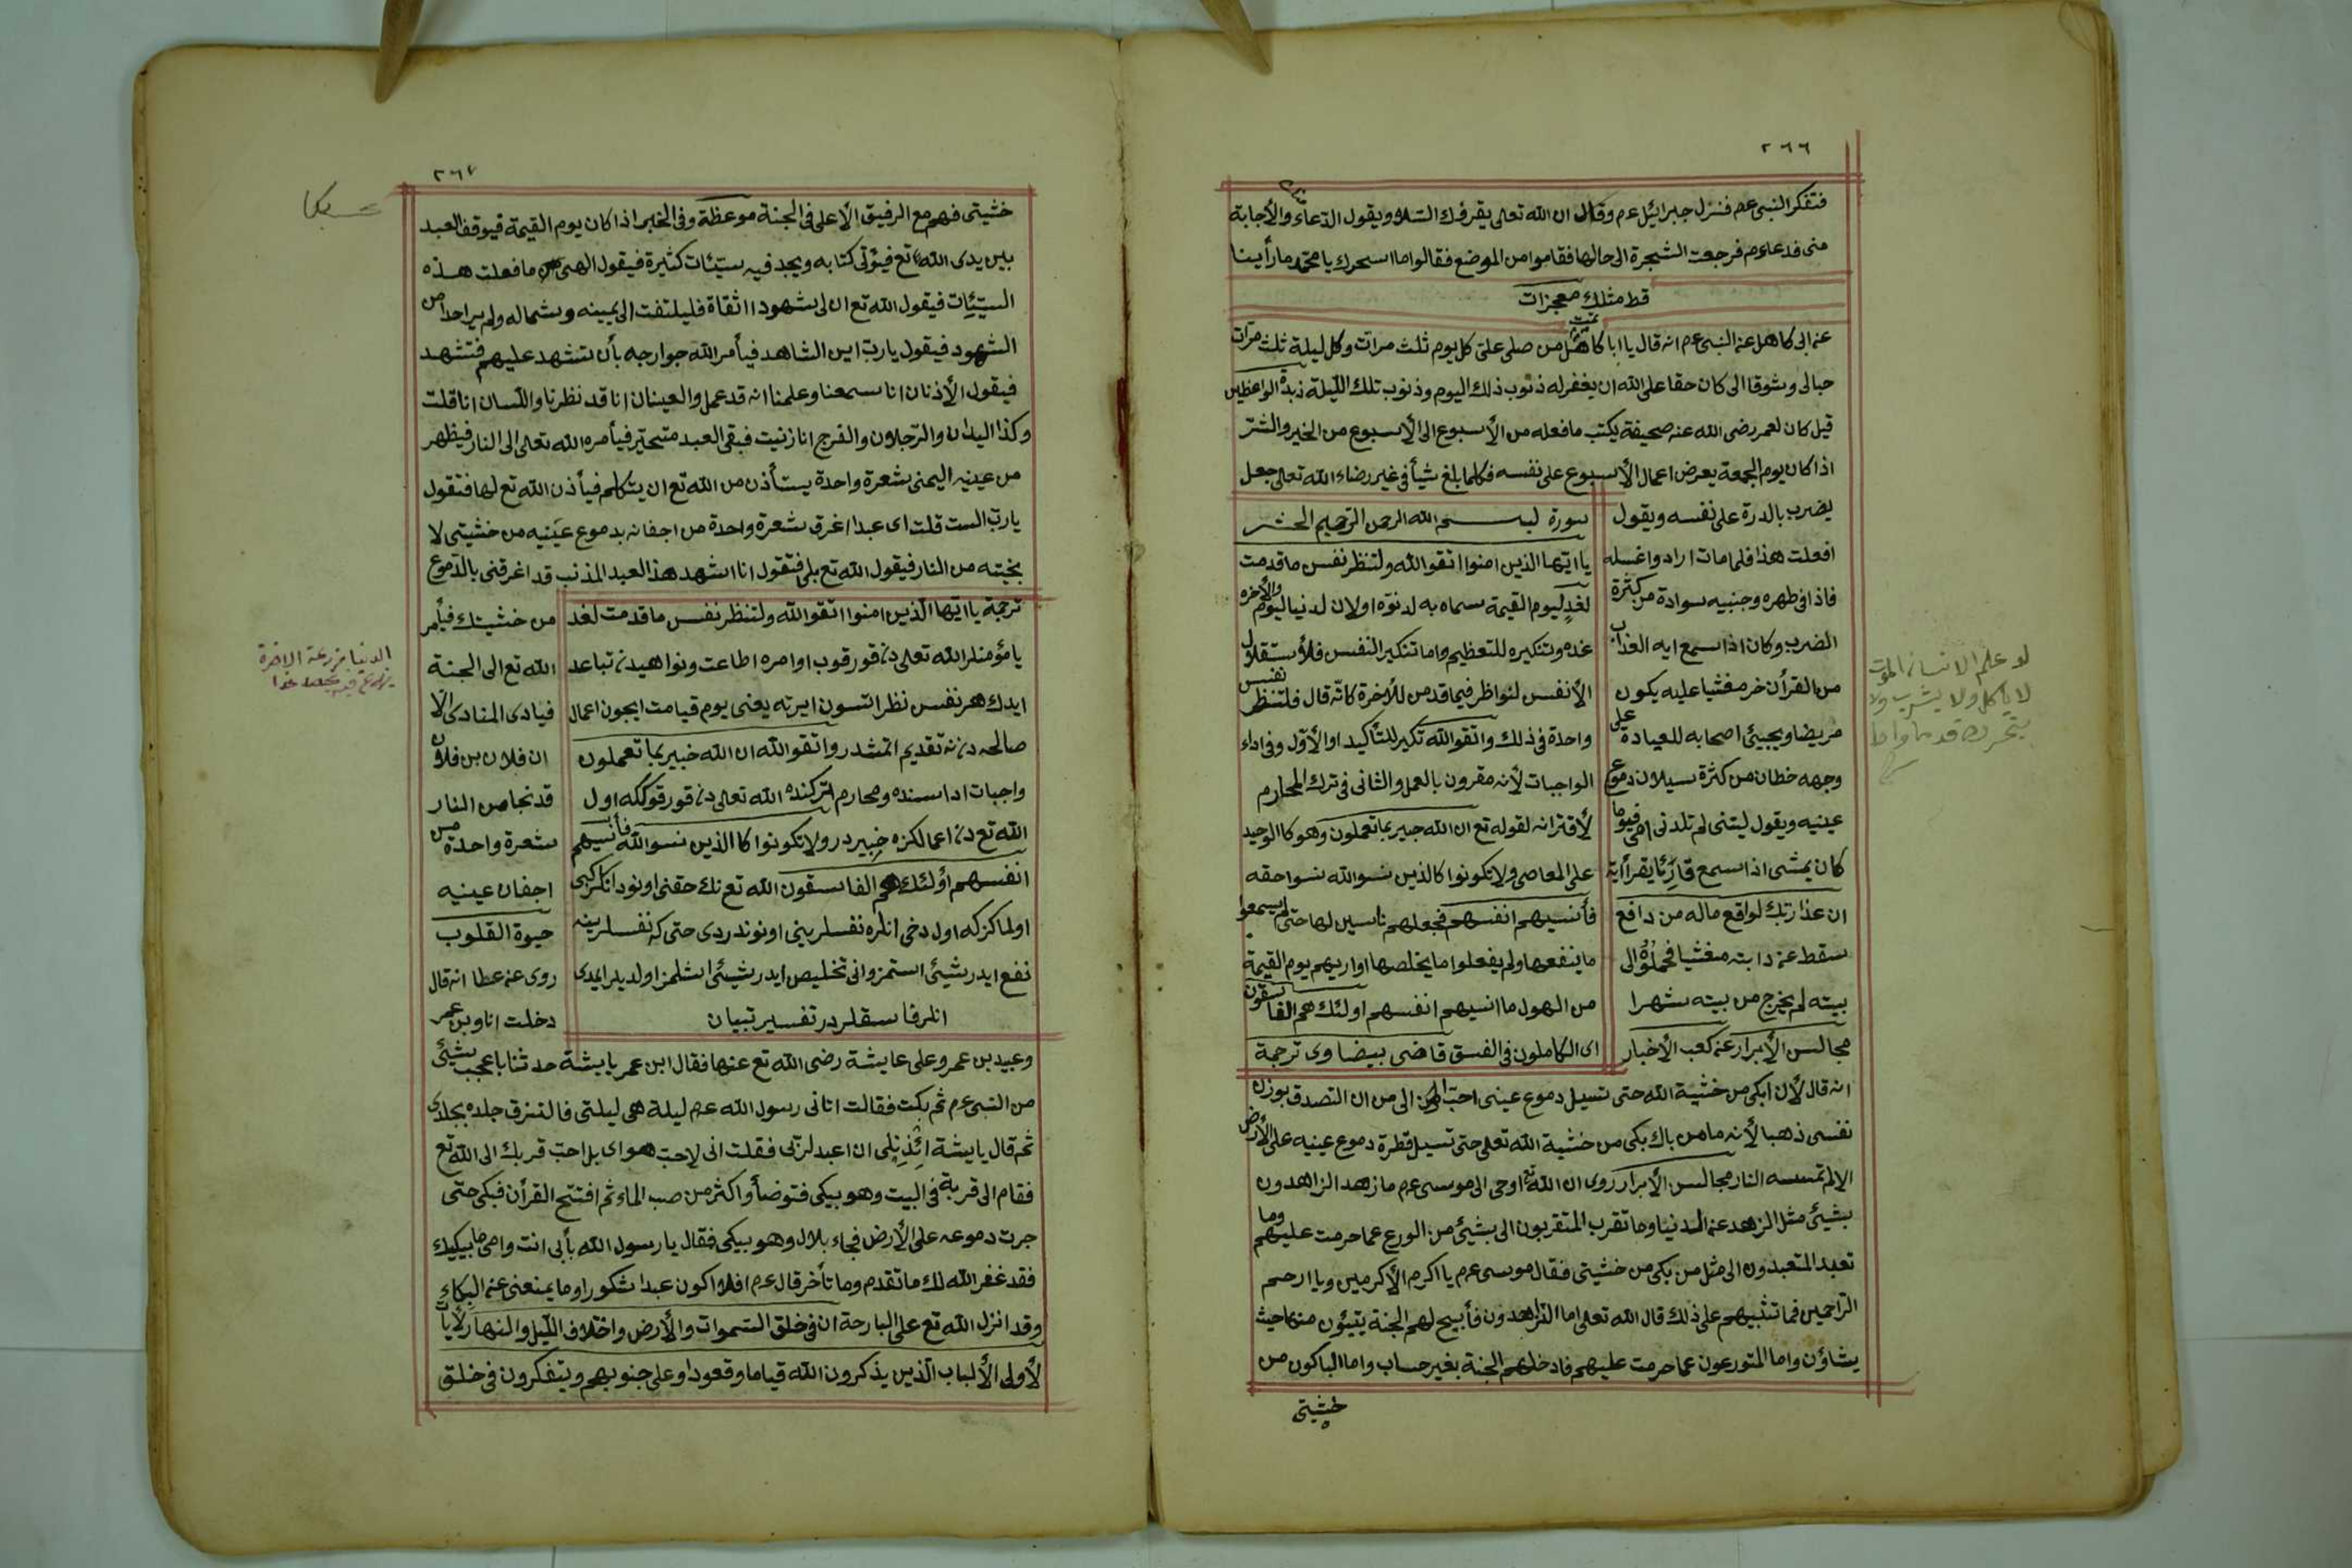 ٢٦٦
فتفكر النبى عم فنزل جبرائيل عم وقال ان الله تعالى يقرؤك السلام ويقول الدعاء والأجابة
منى فدعا عم فرجعت الشجرة الى حالها فقاموا من الموضع فقالوا ما اسحرك يا محمد ما رأينا
قط مثلك معجزات
عن ابى كاهل عن النبى عم انه قال يا ابا كاهل من صلى على كل يوم ثلث مرات وكل ليلة ثلث مرات
حبا لى وشوقا الى كان حقا على الله ان يغفر له ذنوب ذلك اليوم وذنوب تلك الليلة زبدة الواعظين
قيل كان لعمر رضى الله عنه صحيفة يكتب ما فعله من الأسبوع الى الأسبوع من الخير والشر
اذا كان يوم الجمعة يعرض اعمال الأسبوع على نفسه فكلما بلغ شيأ فى غير رضاء الله تعالى جعل
يضرب بالدرة على نفسه ويقول
افعلت هذا فلما مات ارادوا غسله
فاذا فى ظهره وجنبيه سوادة من كثرة
الضرب وكان اذا سمع اية العذاب
من القرأن خر مغشيا عليه يكون
مريضا ويجيئ اصحابه للعيادة على
وجهه خطان من كثرة سيلان دموع
عينيه ويقول ليتنى لم تلدنى امى فيوما
كان يمشى اذا سمع قارئا يقرأ أية
ان عذاب ربك لواقع ماله من دافع
سقط عن دابته مغشيا فحملوه الى
بيته لم يخرج من بيته شهرا
مجالس الأبرار عن كعب الأخبار
سورة بسم الله الرحمن الرحيم الحشر
يا ايها الذين امنوا اتقوا الله ولتنظر نفس ما قدمت
لغد ليوم القيمة سماه به لدنوه او لان لدنيا ليوم والأخره
غده وتنكيره للتعظيم واما تنكير النفس فلأستقلال
الأنفس لنواظر فيما قدمن للأخرة كانه قال فلتنظر نفس
واحدة فى ذلك واتقوا الله تكرير للتأكيد او الأول وفى اداء
الواجبات لأنه مقرون بالعمل والثانى فى ترك المحارم
لأقترانه لقوله تع ان الله خبير بما تعملون وهو كالوعيد
على المعاصى ولا تكونوا كالذين نسوا الله نسوا حقه
فأنسيهم انفسهم فجعلهم ناسين لها حتى لم يسمعوا
ما ينفعها ولم يفعلوا ما يخلصها او اريهم يوم القيمة
من الهول ما انسيهم انفسهم اولئك هم الفاسقون
اى الكاملون فى الفسق قاضى بيضاوى ترجمة
انه قال لأن ابكى من خشية الله حتى تسيل دموع عينى احب الى من ان اتصدق بوزن
نفسى ذهبا لأنه ما من باك بكى من خشية الله تعالى حتى تسيل قطرة دموع عينيه على الأرض
الا لم تمسسه النار مجالس الأبرار روى ان الله تع اوحى الى موسى عم ما زهد الزاهدون
بشيئ مثل الزهد عن الدنيا وما تقرب المتقربون الى بشيئ من الورع عما حرمت عليهم وما
تعبد المتعبدون الى مثل من بكى من خشيتى فقال موسى عم يا اكرم الأكرمين ويا ارحم
الراحمين فما تثيبهم على ذلك قال الله تعالى اما الزاهدون فأبيح لهم الجنة يتبؤن منها حيث
يشاؤن واما المتورعون عما حرمت عليهم فادخلهم الجنة بغير حساب واما الباكون من
خشيتى
لو علم الانسان الموت
لا يأكل ولا يشرب ولا
٢٦٧
خشيتى فهم مع الرفيق الأعلى فى الجنة موعظة وفى الخبر اذا كان يوم القيمة فيوقف العبد
بين يدى الله تع فيؤتى كتابه ويجد فيه سيئات كثيرة فيقول الهى ما فعلت هذه
السيئات فيقول الله تع ان لى شهودا اثقاة فليلتفت الى يمينه وشماله ولم ير احدا من
الشهود فيقول يا رب اين الشاهد فيأمر الله جوارحه بأن تشهد عليهم فتشهد
فيقول الأذنان انا سمعنا وعلمنا انه قد عمل والعينان انا قد نظرنا واللسان انا قلت
وكذا اليدان والرجلان والفرج انا زنيت فبقى العبد متحير فيأمره الله تعالى الى النار فيظهر
من عينيه اليمنى شعرة واحدة يستأذن من الله تع ان يتكلم فيأذن الله تع لها فتقول
يا رب الست قلت اى عبد اغرق شعرة واحدة من اجفانه بدموع عينيه من خشيتى لا
نجيته من النار فيقول الله تع بلى فتقول انا اشهد هذا العبد المذنب قد اغرقنى بالدموع
من خشيتك فيأمر
الله تع الى الجنة
فيادى المنادى الا
ان فلان بن فلان
قد نجا من النار
شعرة واحدة من
اجفان عينيه
حيوة القلوب
روى عن عطا انه قال
دخلت انا وبن عمر
ترجمة يا ايها الذين امنوا اتقوا الله ولتنظر نفس ما قدمت لغد
يا مؤمنلر الله تعالى دن قورقوب اوامره اطاعت ونواهيدن تباعد
ايدك هر نفس نظر اتسون ايرته يعنى يوم قيامت ايچون اعمال
صالحه دن نه تقديم اتمشدر واتقوا الله ان الله خبير بما تعملون
واجبات اداسنده ومحارم تركنده الله تعالى دن قورقوڭكه اول
الله تع دن اعمالكزه خبيردر ولا تكونوا كالذين نسوا الله فأنسيهم
انفسهم أولئك هم الفاسقون الله تع نك حقنى اونودانلر كبى
اولماكز كه اول دخى انلره نفسلرينى اونوتدردى حتى كه نفسلرينه
نفع ايدر شيئى استمز وانى تخليص ايدر شيئى اشلمز اولديلر ايمدى
انلر فاسقلردر تفسير تبيان
وعبيد بن عمر وعلى عايشة رضى الله تع عنها فقال ابن عمر يا يشة حدثنا باعجب شيئ
من النبى عم ثم بكت فقالت اتانى رسول الله عم ليلة هى ليلتى فالتزق جلده بجلدى
ثم قال يا يشة ائذنلى ان اعبد لربى فقلت انى لاحب هواى بل احب قربك الى الله تع
فقام الى قربة فى البيت وهو يبكى فتوضأ واكثر من صب الماء ثم افتتح القرأن فبكى حتى
جرت دموعه على الأرض فجاء بلال وهو يبكى فقال يا رسول الله بأبى انت وامى ما يبكيك
فقد غفر الله لك ما تقدم وما تأخر قال عم افلا اكون عبدا شكورا وما يمنعنى عن البكاء
وقد انزل الله تع على البارحة ان فى خلق السموات والأرض واختلاف الليل والنهار لأيات
لأولى الألباب الذين يذكرون الله قياما وقعودا وعلى جنوبهم ويتفكرون فى خلق
الدنيا مزرعة الاخرة